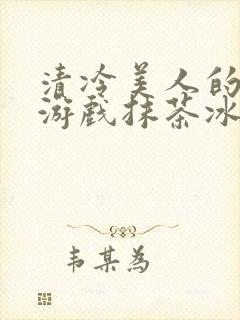 清冷美人的
游戏抹茶冰
韦某为